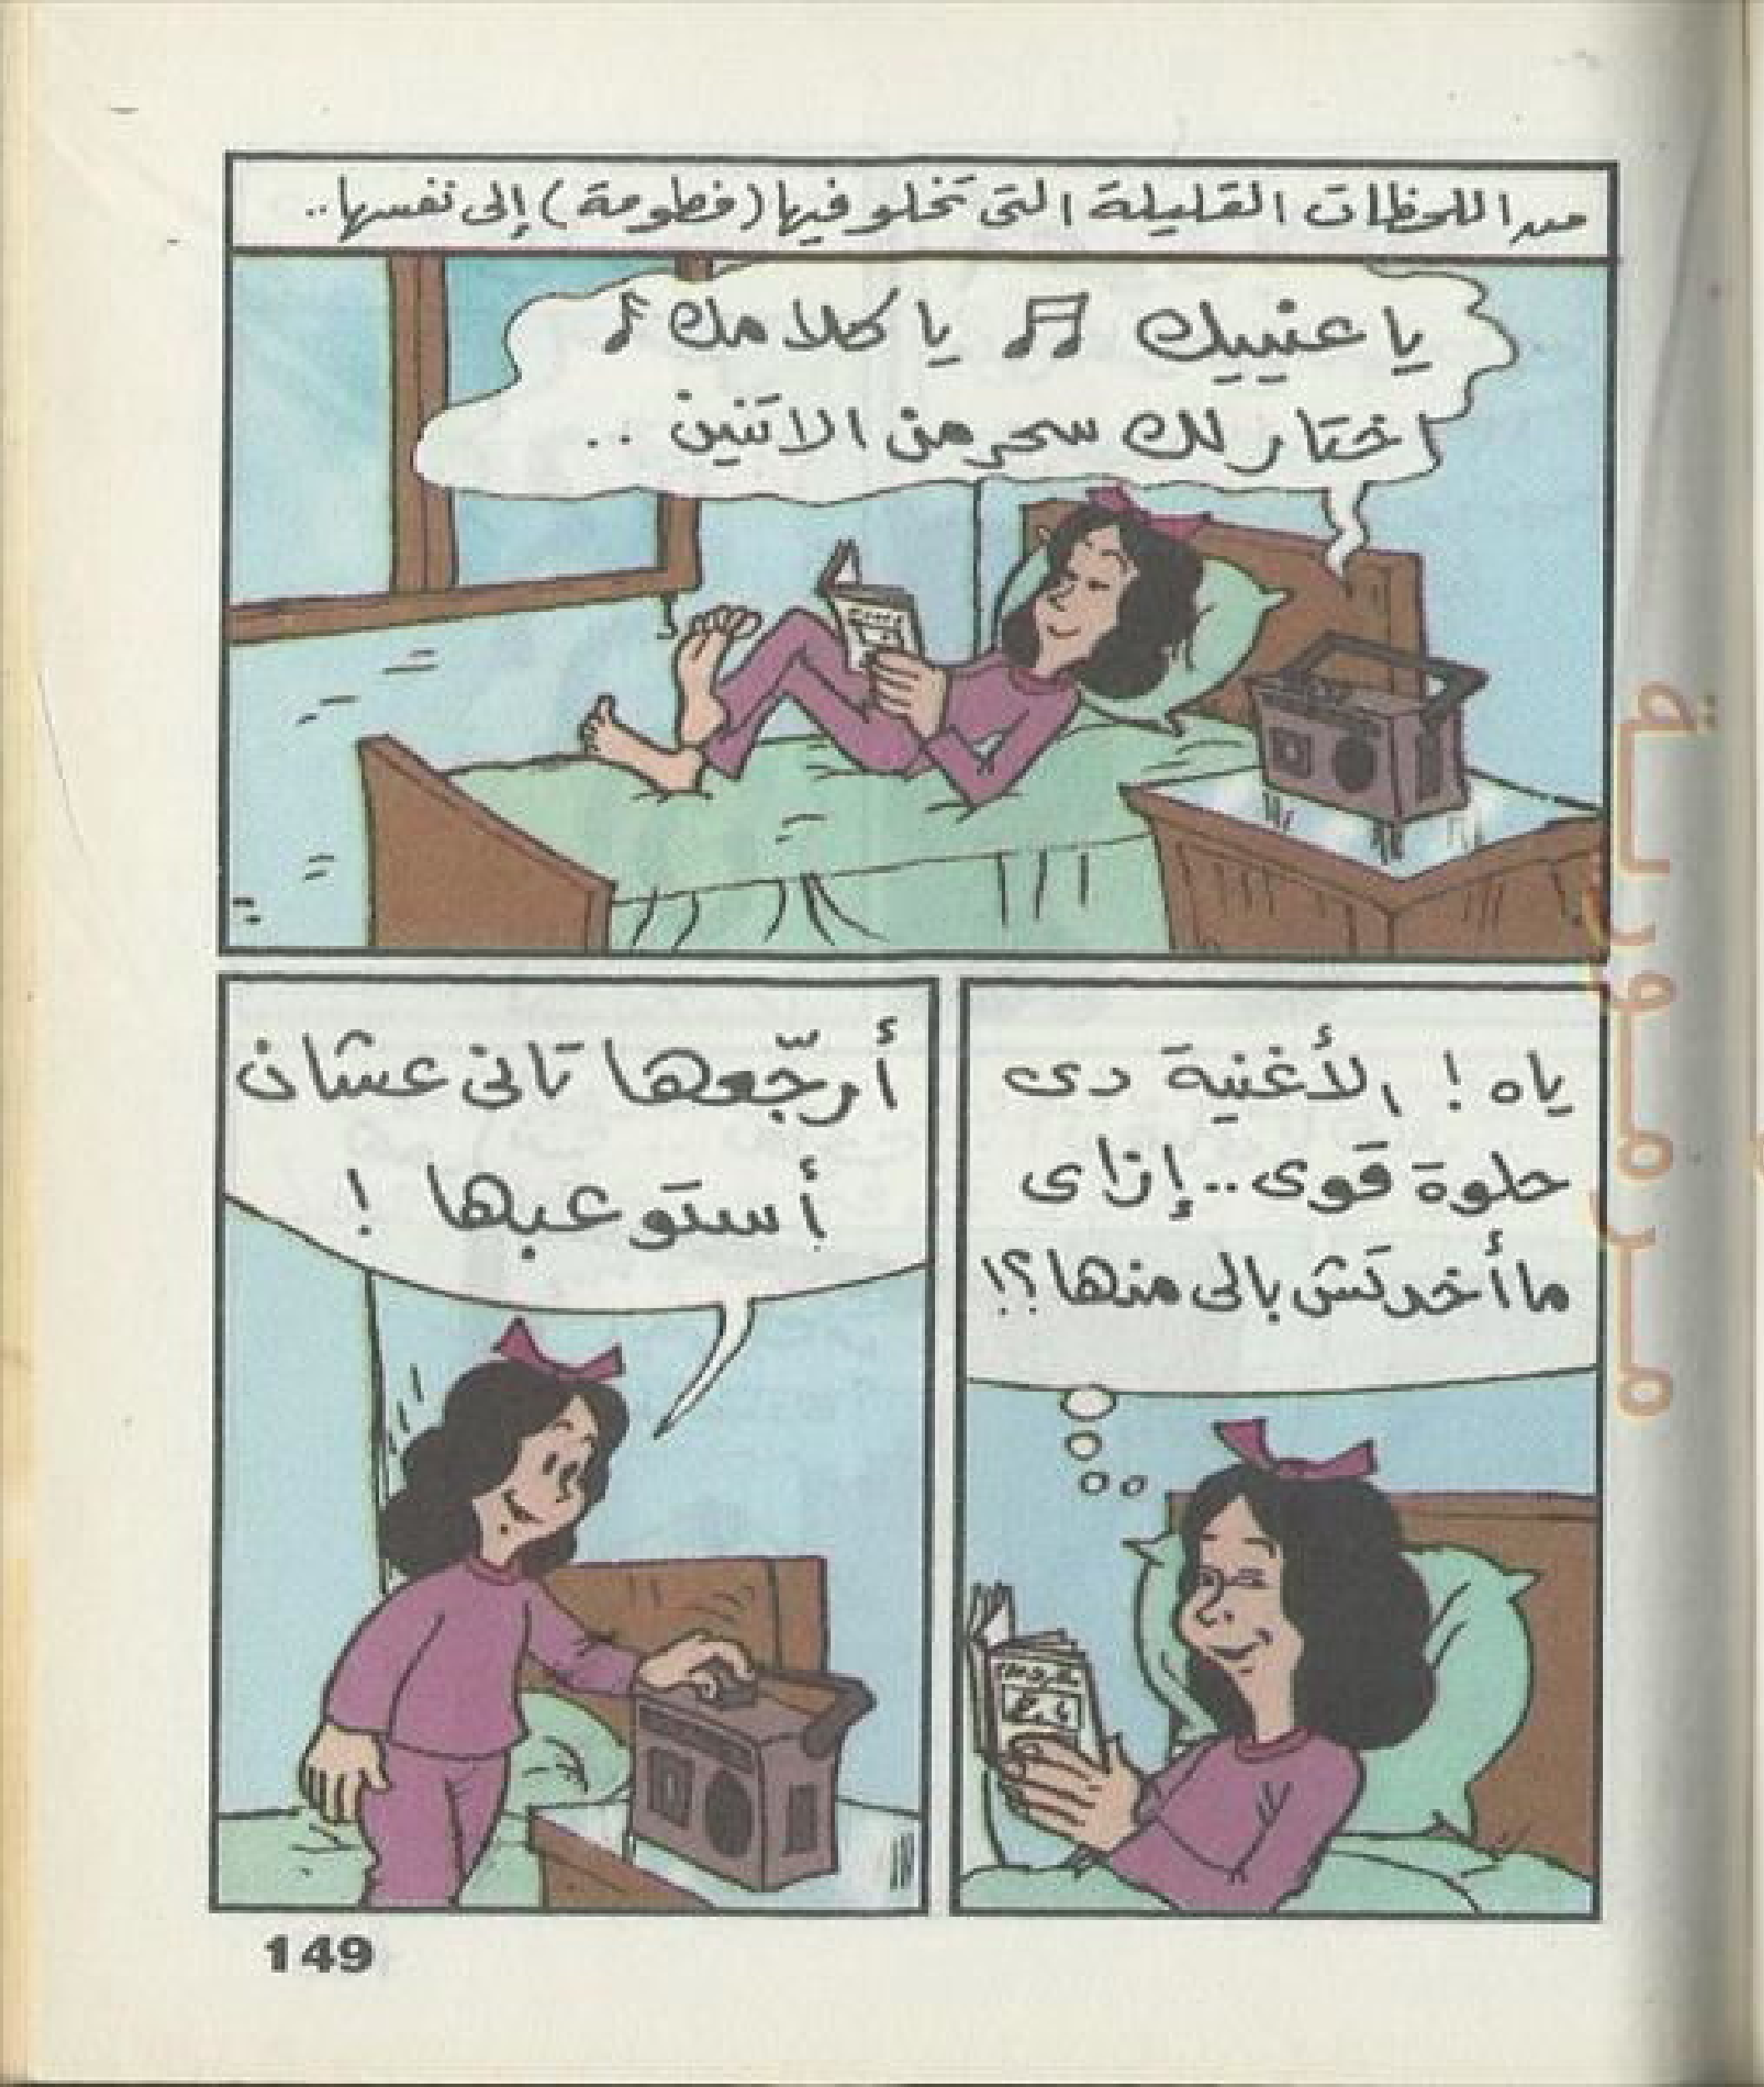 من اللحظات القليلة التى تخلو فيها (فطومة) إلى نفسها..
يا عنييك ♫ يا كلامك ♪
اختار لك سحر من الاتنين ..
ياه ! الأغنية دى
حلوة قوى .. إزاى
ما أخدتش بالى منها؟!
أرجّعها تانى عشان
أستوعبها !
149
مرمورية